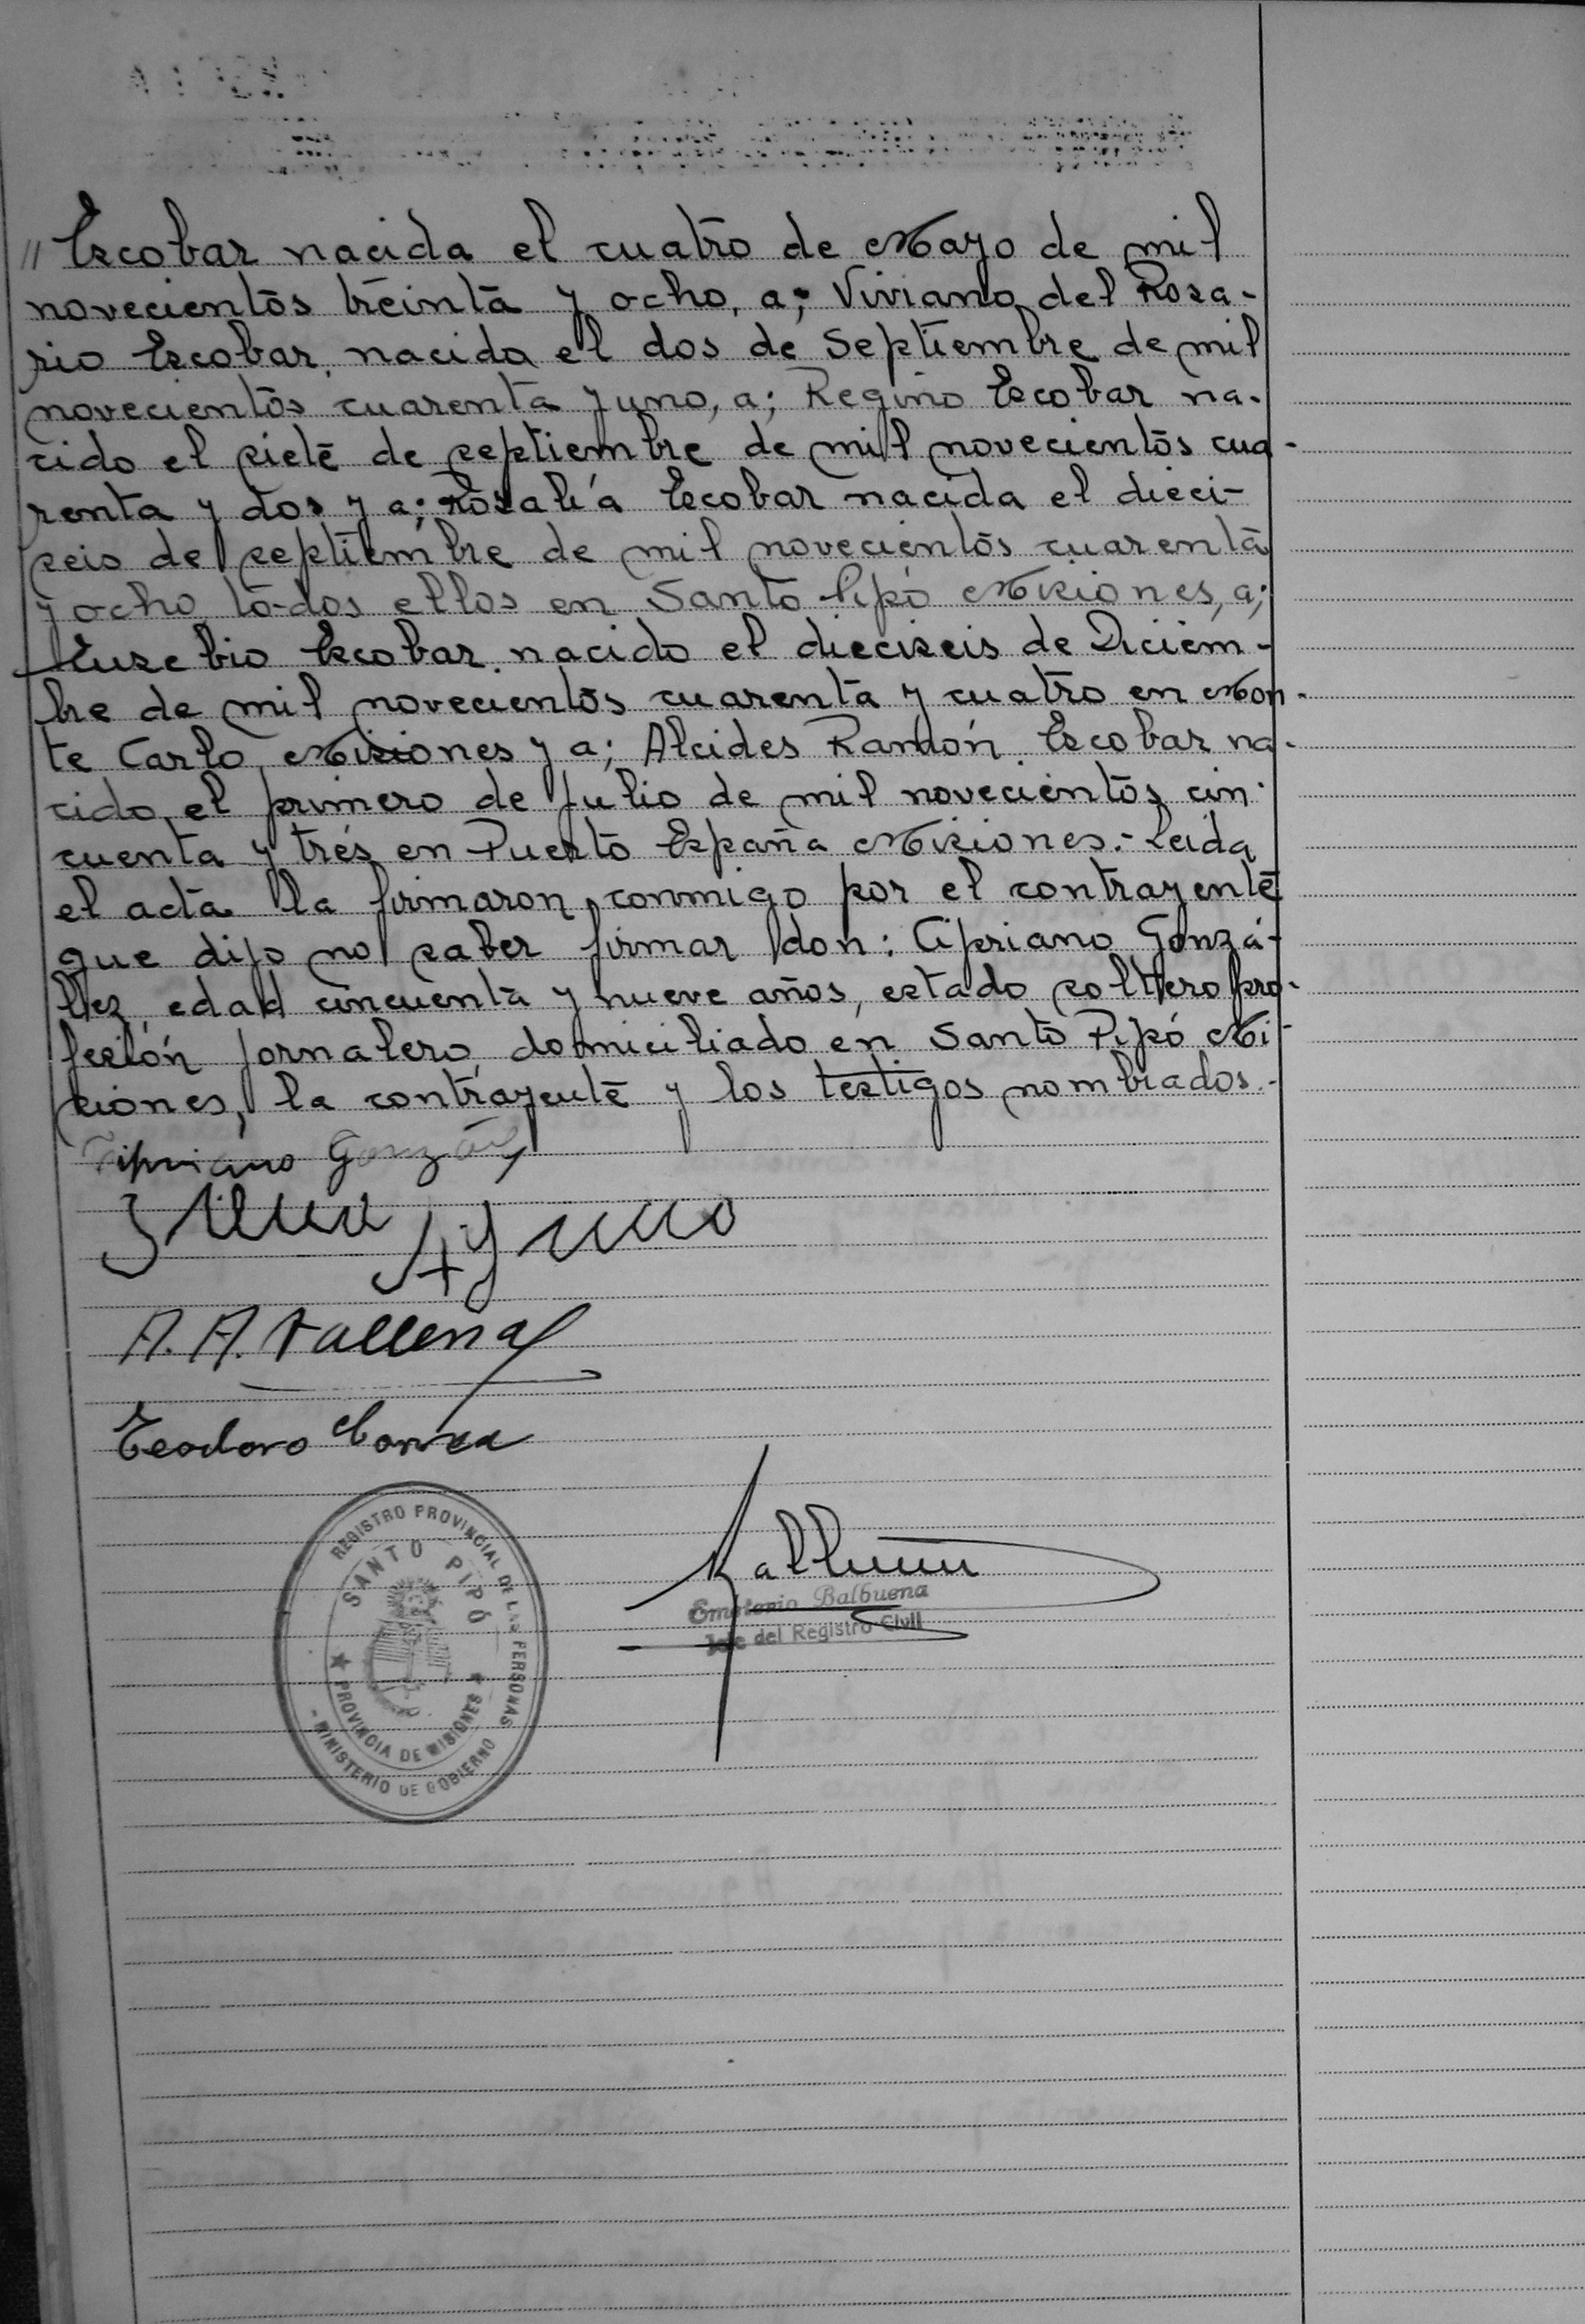 // Escobar nacida el cuatro de Mayo de mil
novecientos treinta y ocho, a; Viviana del Rosa-
rio Escobar, nacida el dos de Septiembre de mil
novecientos cuarenta y uno, a; Regino Escobar na-
cido el siete de septiembre de mil novecientos cua-
renta y dos y a; Rosalía Escobar nacida el dieci-
seis de septiembre de mil novecientos cuarenta
y ocho, todos ellos en Santo Pipó Misiones, a;
Eusebio Escobar nacido el dieciseis de Diciem-
bre de mil novecientos cuarenta y cuatro en Mon-
te Carlo, Misiones y a; Alcides Ramón Escobar na-
cido el primero de Julio de mil novecientos cin-
cuenta y trés en Puerto España Misiones.- Leida
el acta la firmaron conmigo por el contrayente
que dijo no saber firmar don: Cipriano Gonzá-
lez, edad cincuenta y nueve años, estado soltero pro-
fesión jornalero, domiciliado en Santo Pipó Mi-
siones, la contrayente y los testigos nombrados.-
Cipriano González
A. A.
Teodoro Correa
REGISTRO PROVINCIAL DE LAS PERSONAS
SANTO PIPÓ
PROVINCIA DE MISIONES
- MINISTERIO DE GOBIERNO
Balbuena
Jefe del Registro Civil